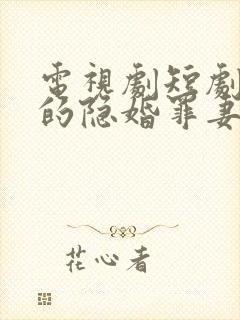 電視劇短劇
的隐婚罪妻
花心者